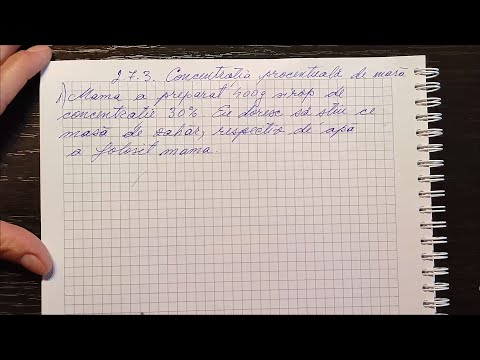 27.3. Concentratia procentuală de masă
1) Mama a preparat 400g sirop de
concentratie 30%. Eu doresc să stiu ce
masă de zahăr, respectiv de apa
a folosit mama.